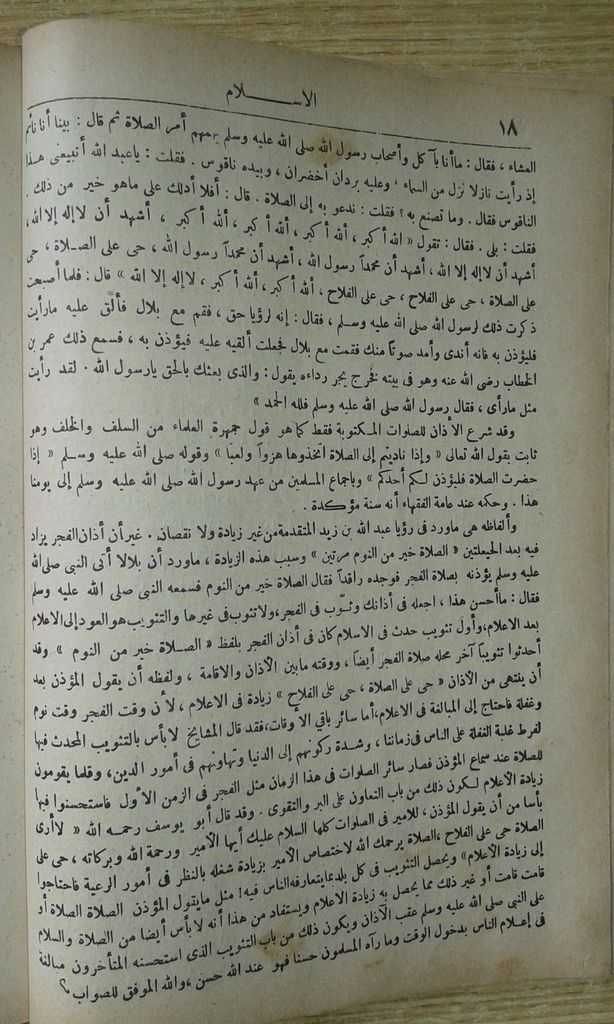 الاســـلام
١٨
العشاء ، فقال : ماأنا بآكل وأصحاب رسول الله صلى الله عليه وسلم يهمهم أمر الصلاة ثم قال : بينا أنا نائم
إذ رأيت نازلا نزل من السماء ، وعليه بردان أخضران ، وبيده ناقوس . فقلت : ياعبد الله أتبيعنى هذا
الناقوس فقال . وما تصنع به ؟ فقلت : ندعو به إلى الصلاة . قال : أفلا أدلك على ماهو خير من ذلك .
فقلت : بلى . فقال : تقول « الله أكبر ، الله أكبر ، ألله أكبر ، ألله أكبر ، أشهد أن لاإله إلا الله ،
أشهد أن لاإله إلا الله ، أشهد أن محمداً رسول الله ، أشهد أن محمداً رسول الله ، حى على الصلاة ، حى
على الصلاة ، حى على الفلاح ، حى على الفلاح ، ألله أكبر ، ألله أكبر ، لاإله إلا الله » قال : فلما أصبحت
ذكرت ذلك لرسول الله صلى الله عليه وسلم ، فقال : إنه لرؤيا حق ، فقم مع بلال فألق عليه مارأيت
فليؤذن به فانه أندى وأمد صوتاً منك فقمت مع بلال فجعلت ألقيه عليه فيؤذن به ، فسمع ذلك عمر بن
الخطاب رضى الله عنه وهو فى بيته فخرج يجر رداءه يقول : والذى بعثك بالحق يارسول الله . لقد رأيت
مثل مارأى ، فقال رسول الله صلى الله عليه وسلم فلله الحمد »
وقد شرع الأذان للصلوات المكتوبة فقط كما هو قول جمهرة العلماء من السلف والخلف وهو
ثابت بقول الله تعالى « وإذا ناديتم إلى الصلاة اتخذوها هزواً ولعباً » وقوله صلى الله عليه وسلم « إذا
حضرت الصلاة فليؤذن لكم أحدكم » وباجماع المسلمين من عهد رسول الله صلى الله عليه وسلم إلى يومنا
هذا . وحكمه عند عامة الفقهاء أنه سنة مؤكدة .
وألفاظه هى ماورد فى رؤيا عبد الله بن زيد المتقدمة من غير زيادة ولا نقصان . غير أن أذان الفجر يزاد
فيه بعد الحيعلتين « الصلاة خير من النوم مرتين » وسبب هذه الزيادة ، ماورد أن بلالا أتى النبى صلى الله
عليه وسلم يؤذنه بصلاة الفجر فوجده راقداً فقال الصلاة خير من النوم فسمعه النبى صلى الله عليه وسلم
فقال : ماأحسن هذا ، اجعله فى أذانك وثوّب فى الفجر ، ولاتثوب فى غيرها والتثويب هو العود إلى الاعلام
بعد الاعلام ، وأول تثويب حدث فى الاسلام كان فى أذان الفجر بلفظ « الصلاة خير من النوم » وقد
أحدثوا تثويباً آخر محله صلاة الفجر أيضاً ، ووقته مابين الأذان والاقامة ، ولفظه أن يقول المؤذن بعد
أن ينتهى من الأذان « حى على الصلاة ، حى على الفلاح » زيادة فى الاعلام ، لأن وقت الفجر وقت نوم
وغفلة فاحتاج إلى المبالغة فى الاعلام ، أما سائر باقى الأوقات ، فقد قال المشايخ لابأس بالتثويب المحدث فيها
لفرط غلبة الغفلة على الناس فى زماننا ، وشدة ركونهم إلى الدنيا وتهاونهم فى أمور الدين ، وقلما يقومون
للصلاة عند سماع المؤذن فصار سائر الصلوات فى هذا الزمان مثل الفجر فى الزمن الأول فاستحسنوا فيها
زيادة الأعلام لكون ذلك من باب التعاون على البر والتقوى . وقد قال أبو يوسف رحمه الله « لاأرى
بأسا من أن يقول المؤذن ، للامير فى الصلوات كلها السلام عليك أيها الأمير ورحمة الله وبركاته ، حى على
الصلاة حى على الفلاح ، الصلاة يرحمك الله لاختصاص الأمير بزيادة شغله بالنظر فى أمور الرعية فاحتاجوا
إلى زيادة الأعلام » ويحصل التثويب فى كل بلد بما يتعارفه الناس فيه ! مثل مايقول المؤذن الصلاة الصلاة أو
قامت قامت أو غير ذلك مما يحصل به زيادة الاعلام ويستفاد من هذا أنه لابأس أيضا من الصلاة والسلام
على النبى صلى الله عليه وسلم عقب الأذان ويكون ذلك من باب التثويب الذى استحسنه المتأخرون مبالغة
فى إعلام الناس بدخول الوقت وما رآه المسلمون حسنا فهو عند الله حسن ، والله الموفق للصواب ؟